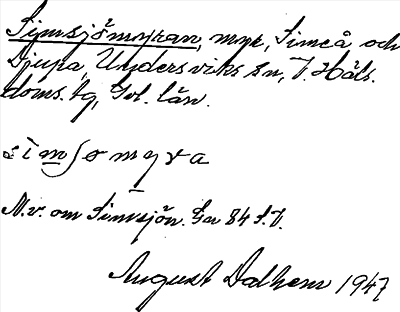 Simsjömyran, myr, Simeå och
Djupa, Undersviks sn, V. Häls.
doms. tg, Gvl. län.
sìmʃomyra
N.v. om Simsjön. Gu 84 S.V.
August Dalhem 1947